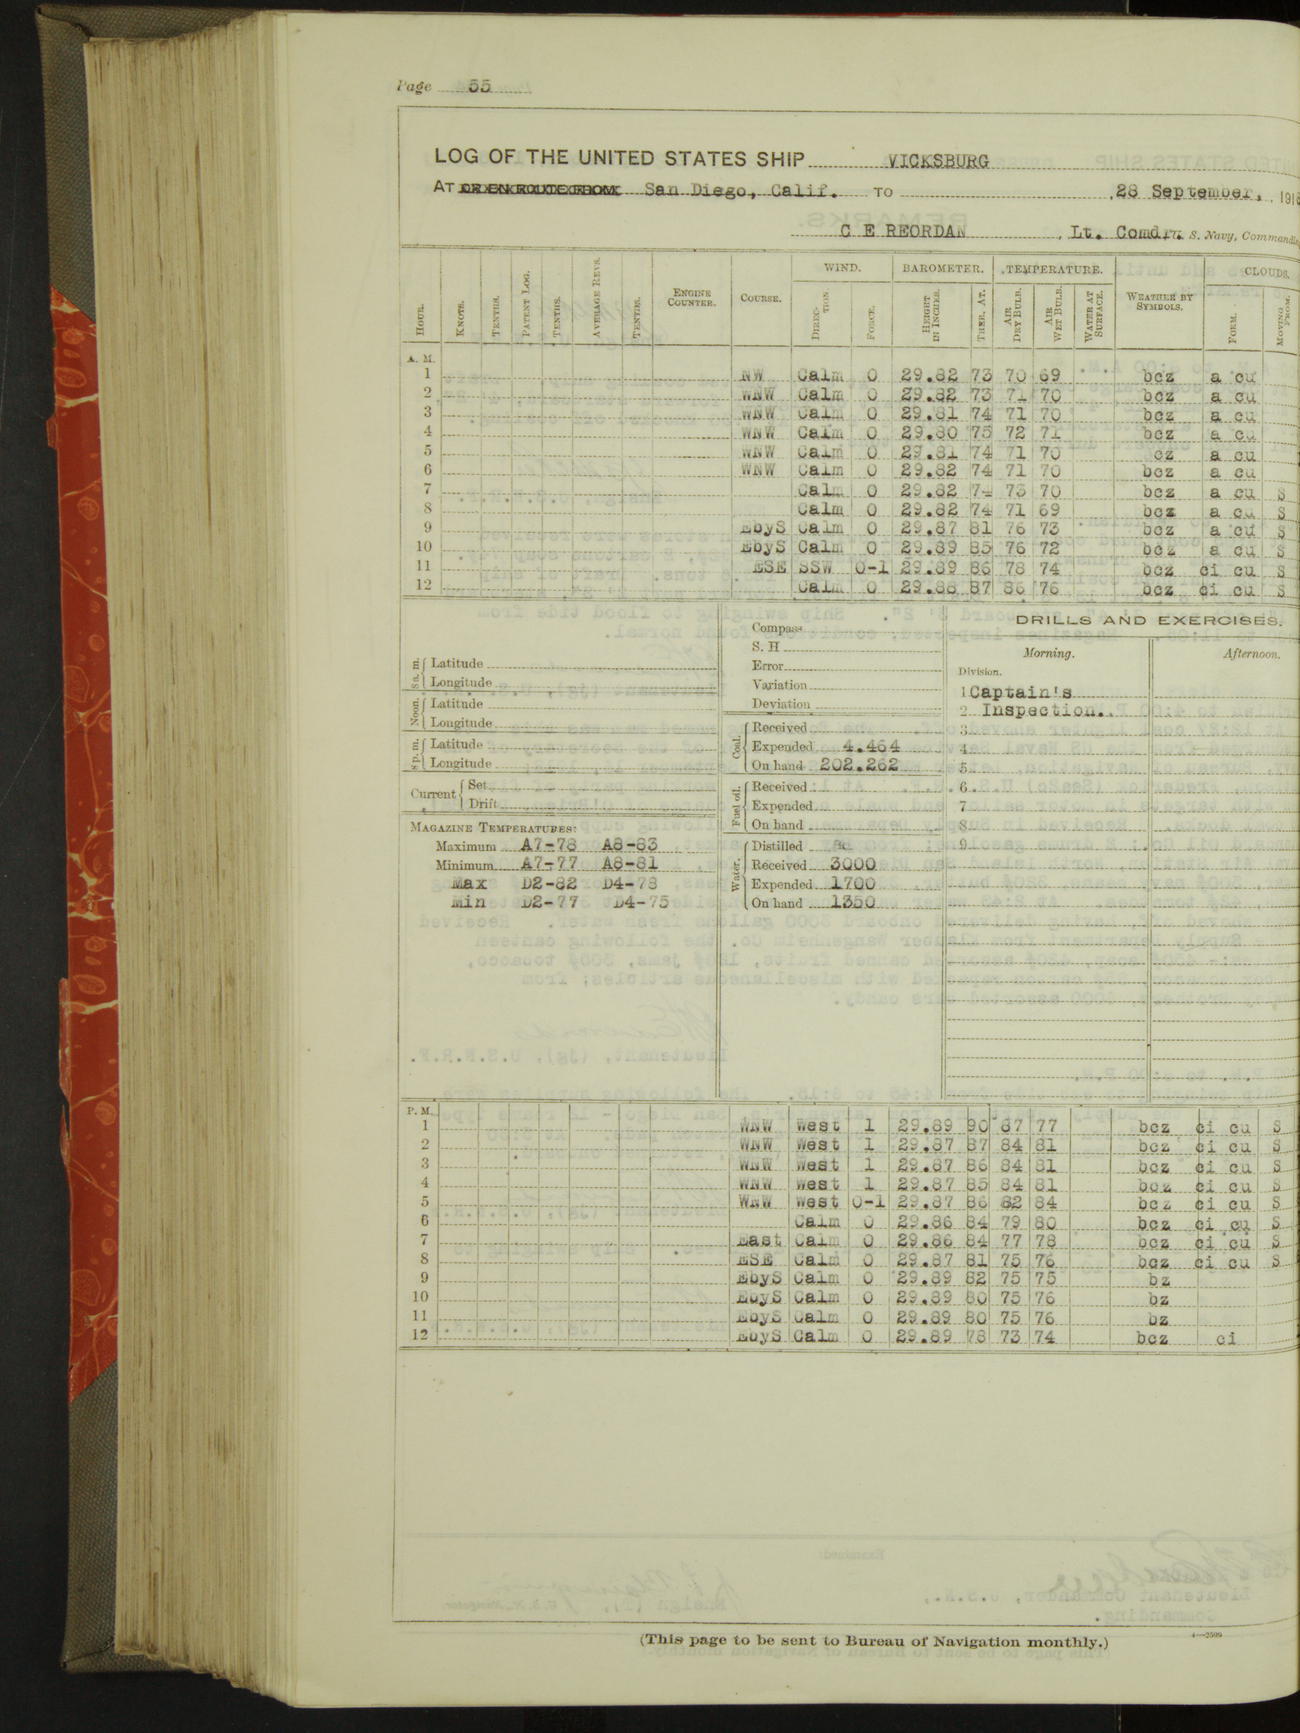 Page 55
LOG OF THE UNITED STATES SHIP VICKSBURG
AT OR EN ROUTE FROM San Diego, Calif. TO 28 September, 191
C E REORDAN, Lt. Comdr. U. S. Navy, Commandi
WIND. BAROMETER. TEMPERATURE. CLOUDS.
HOUR. KNOTS. TENTHS. PATENT LOG. TENTHS. AVERAGE REVS. TENTHS. ENGINE COUNTER. COURSE. DIRECTION. FORCE. HEIGHT IN INCHES. THER. AT. AIR DRY BULB. AIR WET BULB. WATER AT SURFACE. WEATHER BY SYMBOLS. FORM. MOVING FROM.
A. M.
1 NW Calm 0 29.82 73 70 69 bcz a cu
2 WNW Calm 0 29.82 73 71 70 bcz a cu
3 WNW Calm 0 29.81 74 71 70 bcz a cu
4 WNW Calm 0 29.80 75 72 71 bcz a cu
5 WNW Calm 0 29.81 74 71 70 cz a cu
6 WNW Calm 0 29.82 74 71 70 bcz a cu
7 Calm 0 29.82 74 73 70 bcz a cu S
8 Calm 0 29.82 74 71 69 bcz a cu S
9 EbyS Calm 0 29.87 81 76 73 bcz a cu S
10 EbyS Calm 0 29.89 85 76 72 bcz a cu S
11 ESE SSW 0-1 29.89 86 78 74 bcz ci cu S
12 Calm 0 29.88 87 86 76 bcz ci cu S
8 a. m. Latitude
Longitude
Noon. Latitude
Longitude
8 p. m. Latitude
Longitude
Current Set
Drift
MAGAZINE TEMPERATURES:
Maximum A7-78 A8-83
Minimum A7-77 A8-81
Max D2-82 D4-78
Min D2-77 D4-75
Compass
S. H
Error
Variation
Deviation
Coal. Received
Expended 4.464
On hand 202.262
Fuel oil. Received
Expended
On hand
Water. Distilled
Received 3000
Expended 1700
On hand 1350
DRILLS AND EXERCISES.
Morning. Afternoon.
Division.
1 Captain's
2 Inspection.
3
4
5
6
7
8
9
P. M.
1 WNW West 1 29.89 90 87 77 bcz ci cu S
2 WNW West 1 29.87 87 84 81 bcz ci cu S
3 WNW West 1 29.87 86 84 81 bcz ci cu S
4 WNW West 1 29.87 85 84 81 bcz ci cu S
5 WNW West 0-1 29.87 86 82 84 bcz ci cu S
6 Calm 0 29.86 84 79 80 bcz ci cu S
7 East Calm 0 29.86 84 77 78 bcz ci cu S
8 ESE Calm 0 29.87 81 75 76 bcz ci cu S
9 EbyS Calm 0 29.89 82 75 75 bz
10 EbyS Calm 0 29.89 80 75 76 bz
11 EbyS Calm 0 29.89 80 75 76 bz
12 EbyS Calm 0 29.89 78 73 74 bcz ci
(This page to be sent to Bureau of Navigation monthly.)
4—2599